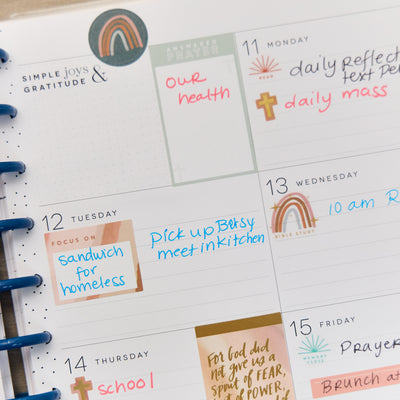 SIMPLE joys &
GRATITUDE
ANSWERED
PRAYER
OUR
health
11 MONDAY
READ
daily Reflect
text
daily mass
12 TUESDAY
FOCUS ON
Sandwich
for
homeless
Pick up Betsy
meet in Kitchen
13 WEDNESDAY
BIBLE STUDY
10 am R
14 THURSDAY
school
For God did
not give us a
spirit of FEAR,
but of POWER,
15 FRIDAY
Prayer
BRUNCH at